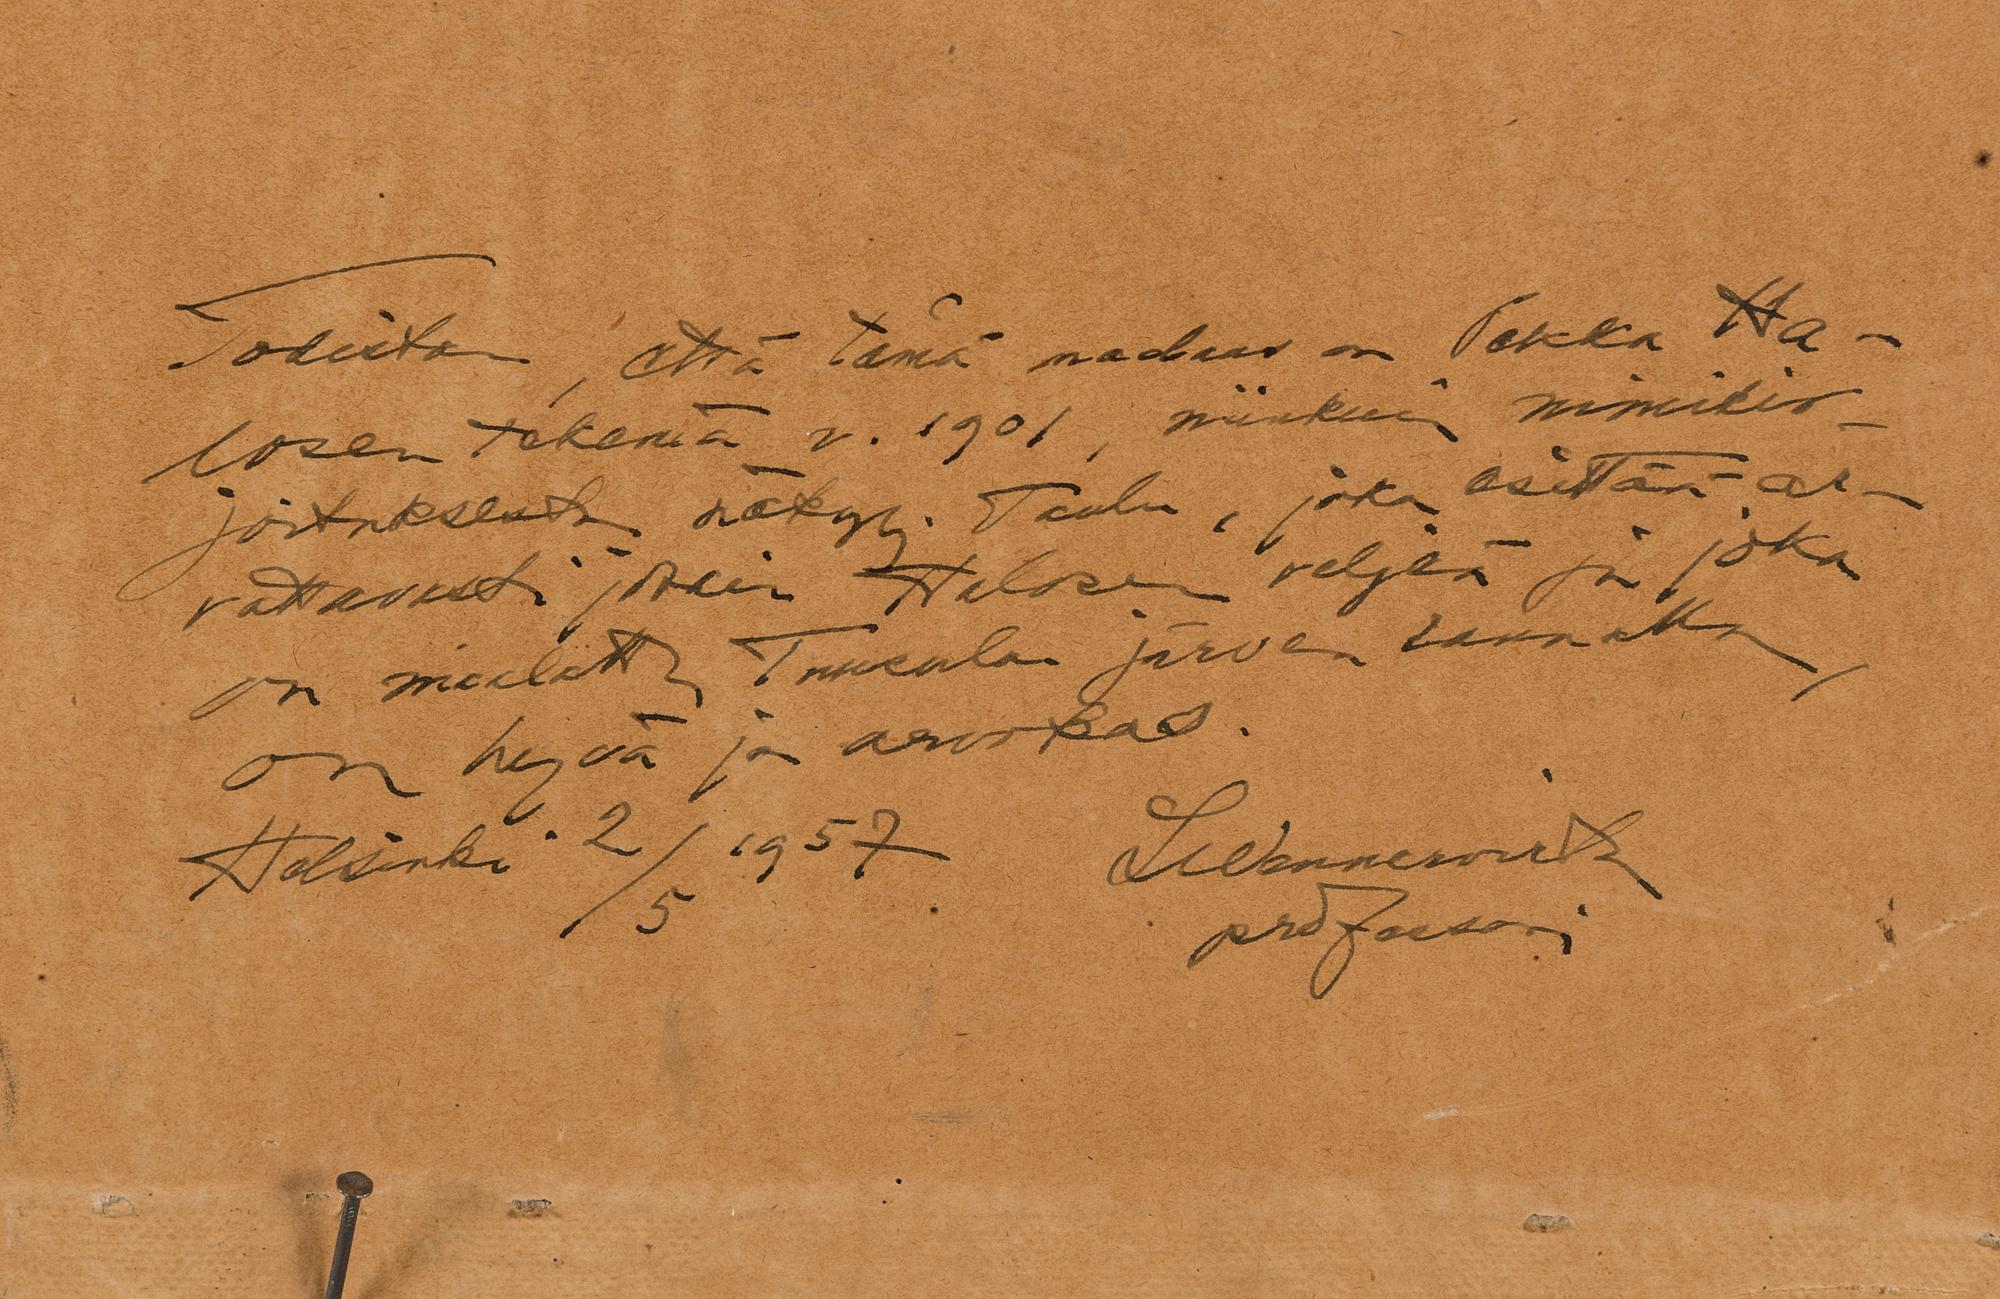 Todistan, että tämä maalaus on Pekka Ha-
losen tekemä v. 1901, niinkuin nimikir-
joituksesta näkyy. Taulu, joka esittää ar-
vattavasti jotain Halosen veljeä ja joka
on maalattu Tuusulan järven rannalla,
on hyvä ja arvokas.
Helsinki 2/5 1957
professori